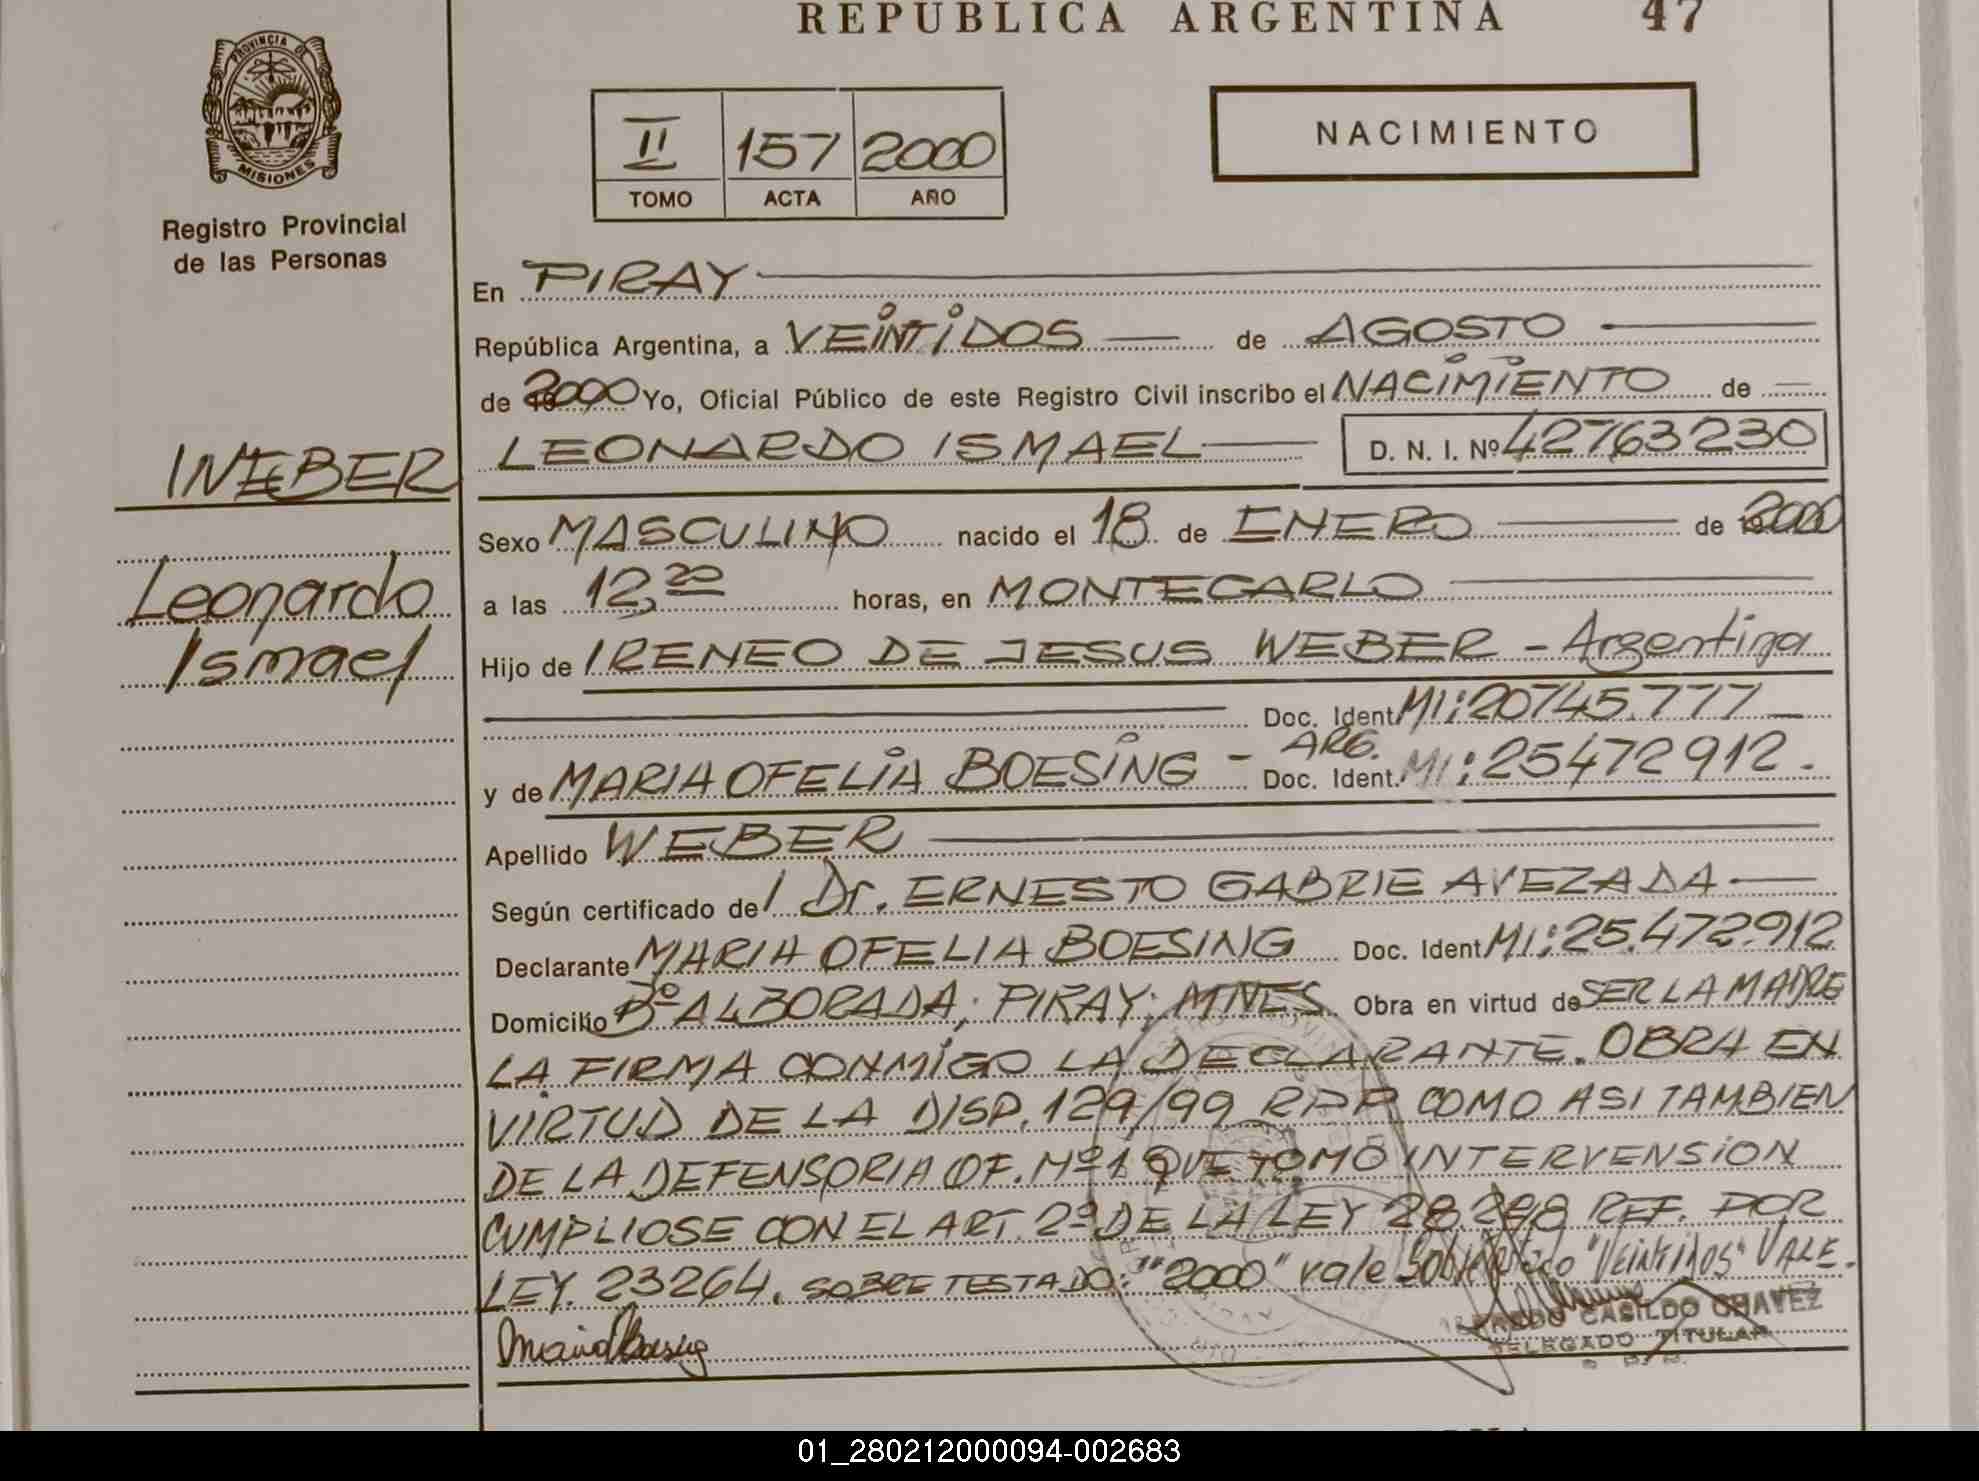 REPUBLICA ARGENTINA 47
PROVINCIA DE
MISIONES
Registro Provincial
de las Personas
II 157 2000
TOMO ACTA AÑO
NACIMIENTO
En PIRAY
República Argentina, a VEINTIDOS de AGOSTO
de 2000 Yo, Oficial Público de este Registro Civil inscribo el NACIMIENTO de
LEONARDO ISMAEL D. N. I. Nº 42763230
WEBER
Leonardo
Ismael
Sexo MASCULINO nacido el 18 de ENERO de 2000
a las 12,20 horas, en MONTECARLO
Hijo de IRENEO DE JESUS WEBER - Argentina
Doc. Ident. MI: 20745.777
y de MARIA OFELIA BOESING - ARG. Doc. Ident. MI: 25472912.
Apellido WEBER
Según certificado del Dr. ERNESTO GABRIE AVEZADA
Declarante MARIA OFELIA BOESING Doc. Ident MI: 25.472.912
Domicilio Bº ALBORADA; PIRAY; MNES. Obra en virtud de SER LA MADRE
LA FIRMA CONMIGO LA DECLARANTE. OBRA EN
VIRTUD DE LA DISP. 129/99 RPP COMO ASI TAMBIEN
DE LA DEFENSORIA OF. Nº 1 QUE TOMO INTERVENSION
CUMPLIOSE CON EL ART. 2º DE LA LEY REF. POR
LEY. 23264. SOBRE TESTADO: "2000" vale "VEINTIDOS" VALE.
ALFREDO CASILDO CHAVEZ
DELEGADO TITULAR
01_280212000094-002683